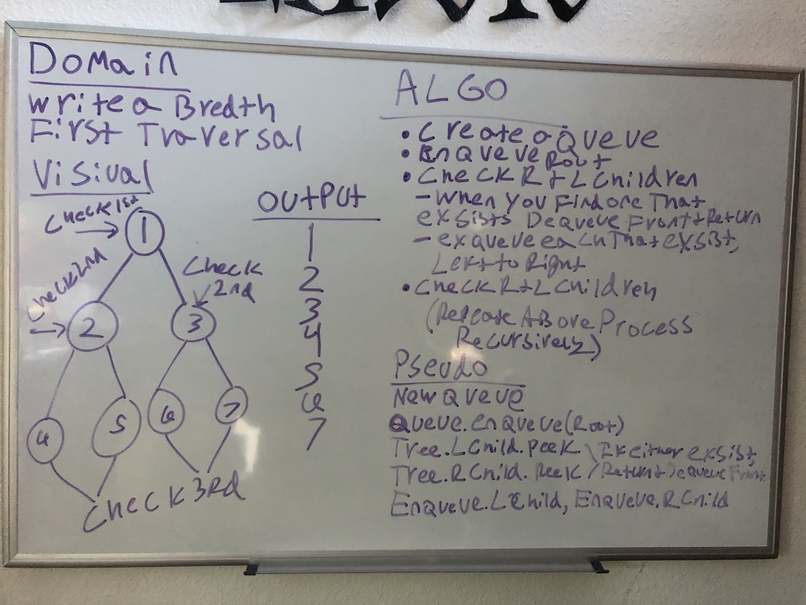 Domain
write a Bredth
First Traversal
Visival
Check 1st
1
Check 2nd
Check
2nd
2
3
4
5
6
7
Check 3rd
OUTPUT
1
2
3
4
5
6
7
ALGO
• Create a Queue
• EnQueue Root
• Check R + L Children
- When you Find one That
exsists Dequeue Front + Return
- exqueue each That exsist,
Left to Right
• Check R + L Children
(Repeat Above Process
Recursively)
Pseudo
New Queue
Queue.enQueue(Root)
Tree.LChild.peek \ If either exsist,
Tree.RChild.peek / Return Dequeue Front
Enqueue.LChild, Enqueue.RChild